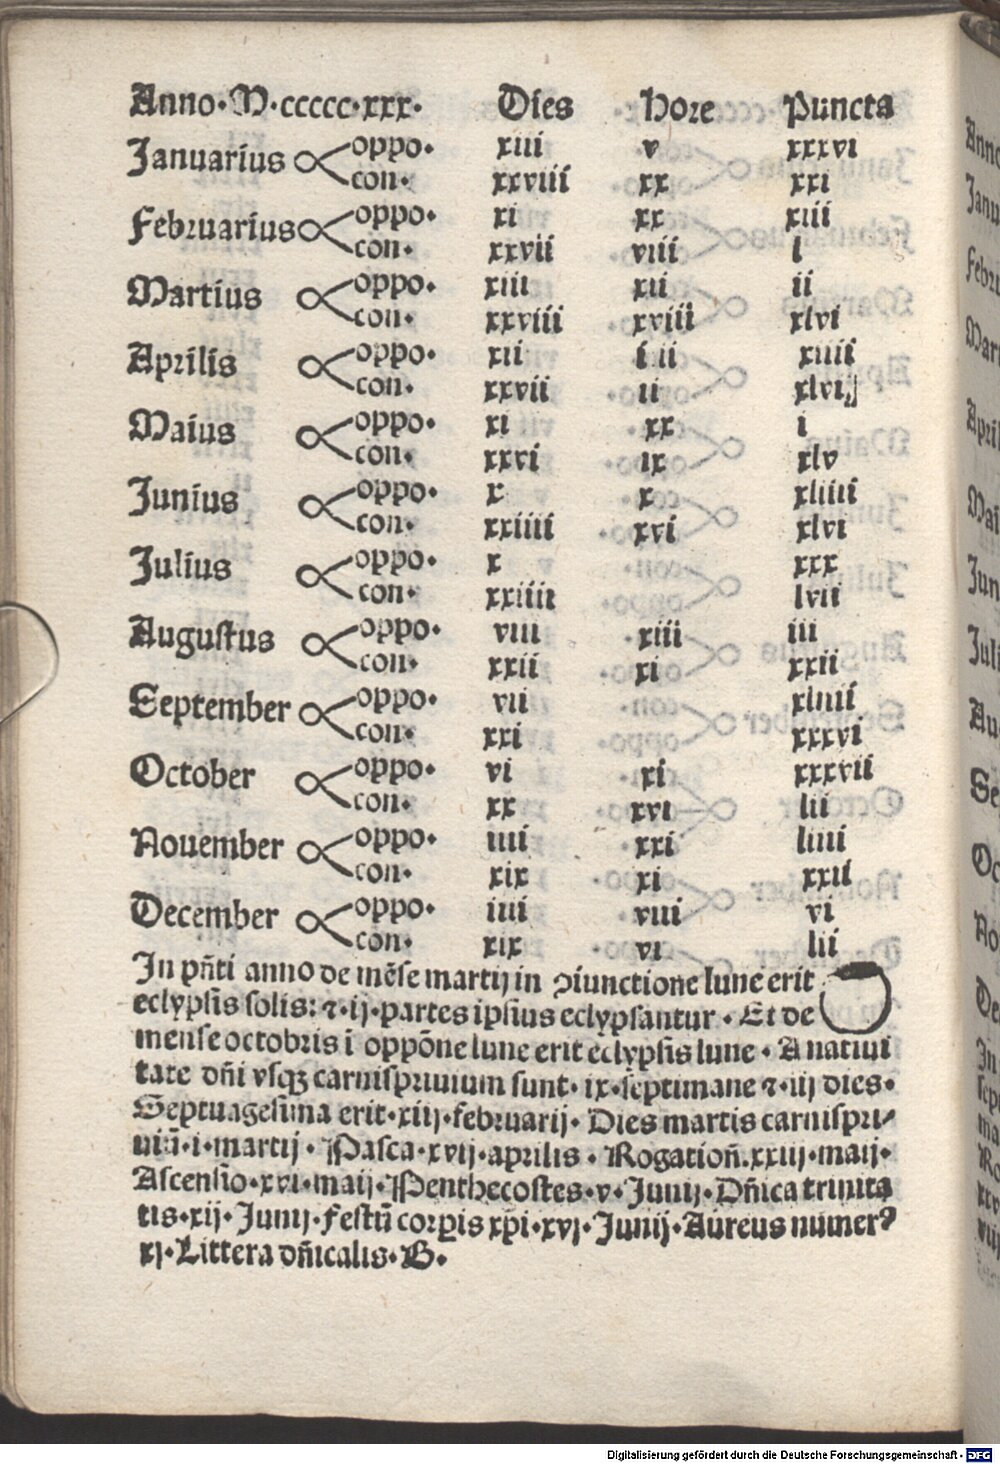 Anno·M·ccccc·xxx· Dies Hore Puncta
Januarius oppo· xiii v xxxvi
con· xxviii xx xxi
Februarius oppo· xi xx xiii
con· xxvii viii l
Martius oppo· xiii xii ii
con· xxviii xviii xlvi
Aprilis oppo· xii iiii xiiii
con· xxvii ii xlvij
Maius oppo· xi xx i
con· xxvi ix xlv
Junius oppo· x x xliiii
con· xxiiii xvi xlvi
Julius oppo· x xxx
con· xxiiii lvii
Augustus oppo· viii xiii iii
con· xxii xi xxii
September oppo· vii xliiii
con· xxi xxxvi
October oppo· vi xi xxxvii
con· xx xvi lii
Nouember oppo· iiii xxi liiii
con· xix xi xxii
December oppo· iiii viii vi
con· xix vi lii
In pñti anno de mēse martij in ɔiunctione lune erit
eclypsis solis: ⁊·ij·partes ipsius eclypsantur· Et de
mense octobris i oppōne lune erit eclypsis lune· A natiui
tate dñi vsqꝫ carnispriuium sunt·ix·septimane ⁊·iij dies·
Septuagesima erit·xiij·februarij· Dies martis carnispri⸗
uiū·i·martij· Pasca·xvij·aprilis· Rogatioñ.xxiij·maij·
Ascensio·xxvi·maij·Penthecostes·v·Junij·Dñica trinita
tis·xij·Junij·Festū corpis xp̄i·xvj·Junij·Aureus numerꝰ
xj·Littera dñicalis·B·
Digitalisierung gefördert durch die Deutsche Forschungsgemeinschaft - DFG